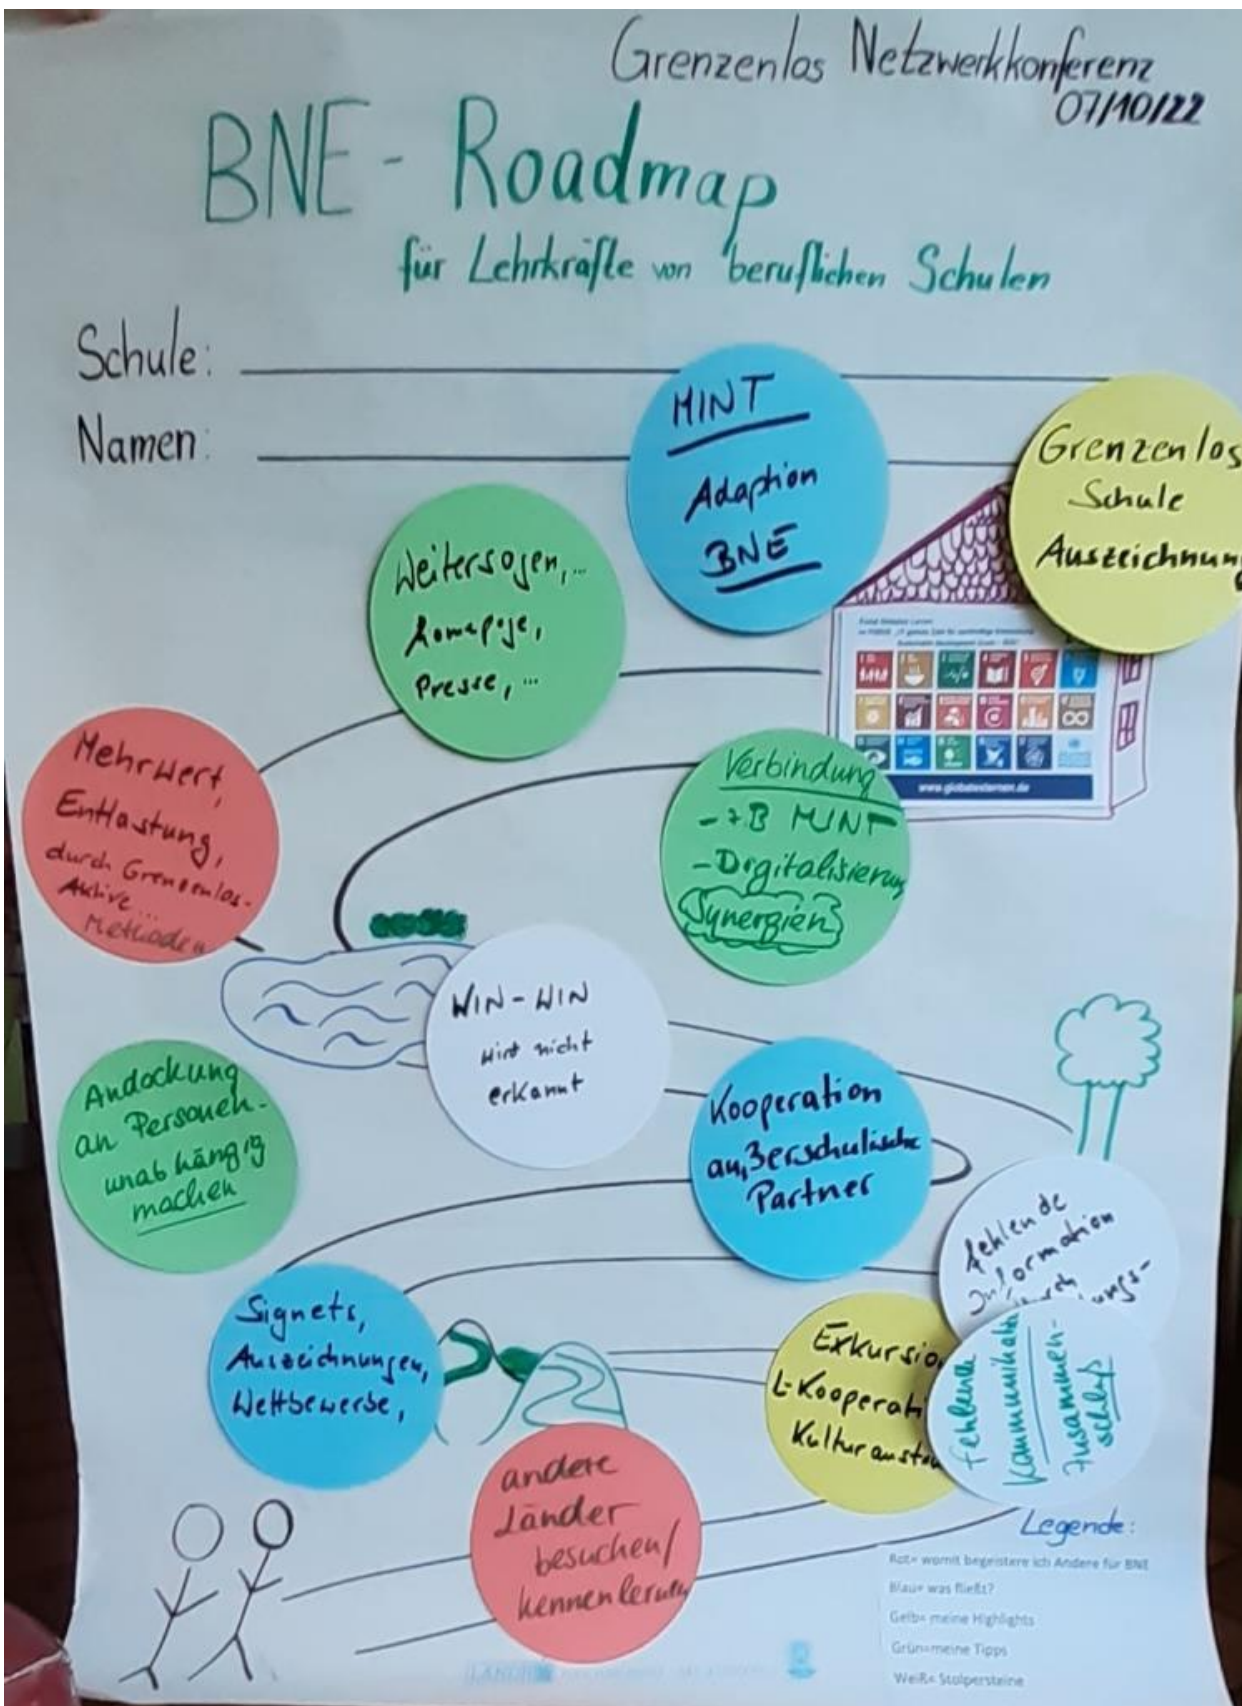 Grenzenlos Netzwerkkonferenz
07/10/22
BNE - Roadmap
für Lehrkräfte von beruflichen Schulen
Schule:
Namen:
MINT
Adaption
BNE
Grenzenlos
Schule
Auszeichnung
Weitersagen,...
Homepage,
Presse,...
www.globaleslernen.de
Mehrwert,
Entlastung,
durch Grenzenlos-
Aktive...
Methoden
Verbindung
- z B MINT
- Digitalisierung
Synergien
WIN-WIN
wird nicht
erkannt
Andockung
an Personen-
unabhängig
machen
Kooperation
außerschulische
Partner
fehlende
Information
durch
ungs-
Signets,
Auszeichnungen,
Wettbewerbe,
Exkursio
L-Kooperati
Kulturausta
Fehlende
Kommunikation
Zusammen-
schluß
andere
Länder
besuchen/
kennenlernen
Legende:
Rot= womit begeistere ich Andere für BNE
Blau= was fließt?
Gelb= meine Highlights
Grün=meine Tipps
Weiß= Stolpersteine